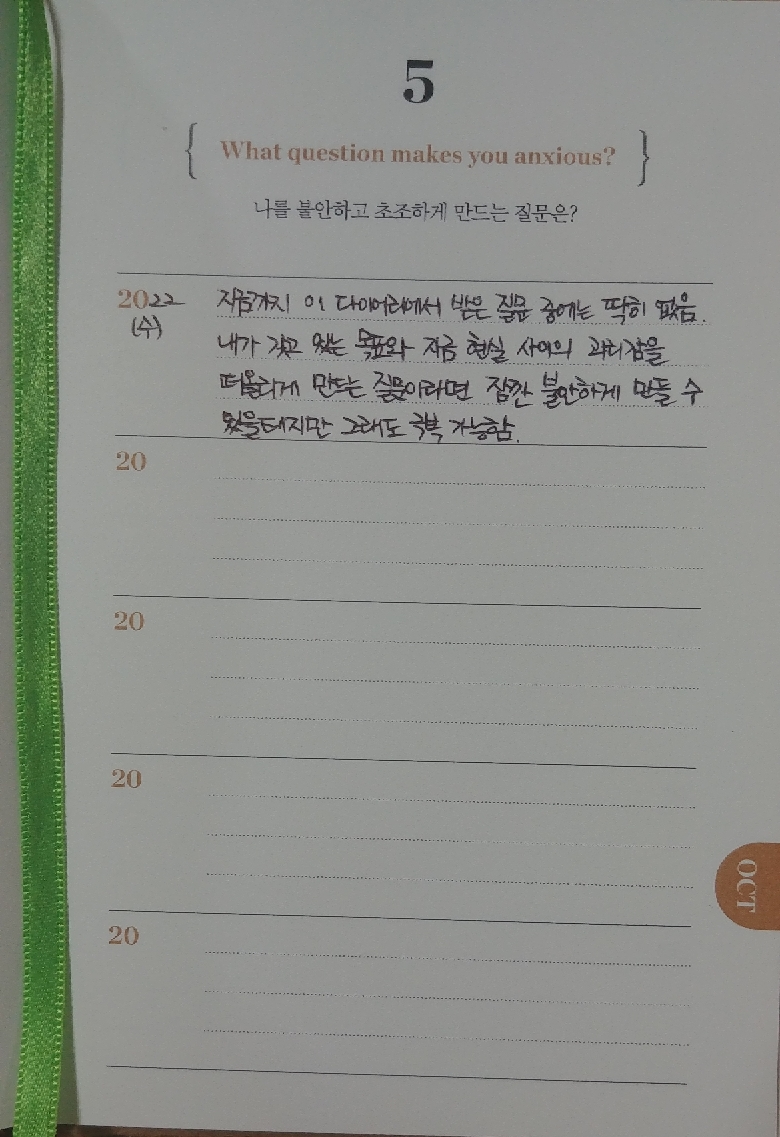 5
{ What question makes you anxious? }
나를 불안하고 초조하게 만드는 질문은?
2022 지금까지 이 다이어리에서 받은 질문 중에는 딱히 없음.
(수) 내가 갖고 있는 목표와 지금 현실 사이의 괴리감을
떠올리게 만드는 질문이라면 잠깐 불안하게 만들 수
있을테지만 그래도 극복 가능함.
20
20
20
OCT
20